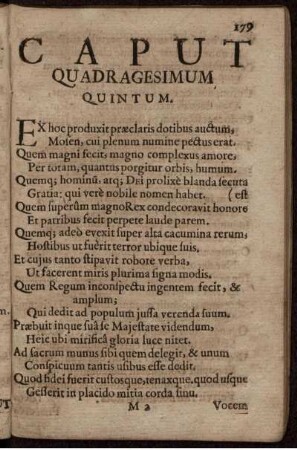 179
CAPUT
QUADRAGESIMUM
QUINTUM.
EX hoc produxit præclaris dotibus auctum,
Mosen, cui plenum numine pectus erat.
Quem magni fecit, magno complexus amore,
Per totam, quantus porgitur orbis, humum.
Quemq; hominũ, atq; DEI prolixè blanda secuta
Gratia: qui verè nobile nomen habet. (est
Quem superũm magno Rex condecoravit honore
Et patribus fecit perpete laude parem.
Quemq; adeò evexit super alta cacumina rerum,
Hostibus ut fuerit terror ubique suis.
Et cujus tanto stipavit robore verba,
Ut facerent miris plurima signa modis.
Quem Regum in conspectu ingentem fecit, &
amplum;
Qui dedit ad populum jussa verenda suum.
Præbuit inque suâ se Majestate videndum,
Heic ubi mirificâ gloria luce nitet.
Ad sacrum munus sibi quem delegit, & unum
Conspicuum tantis usibus esse dedit.
Quod fidei fuerit custosque, tenaxque, quod usque
Gesserit in placido mitia corda sinu.
M 2 Vocem